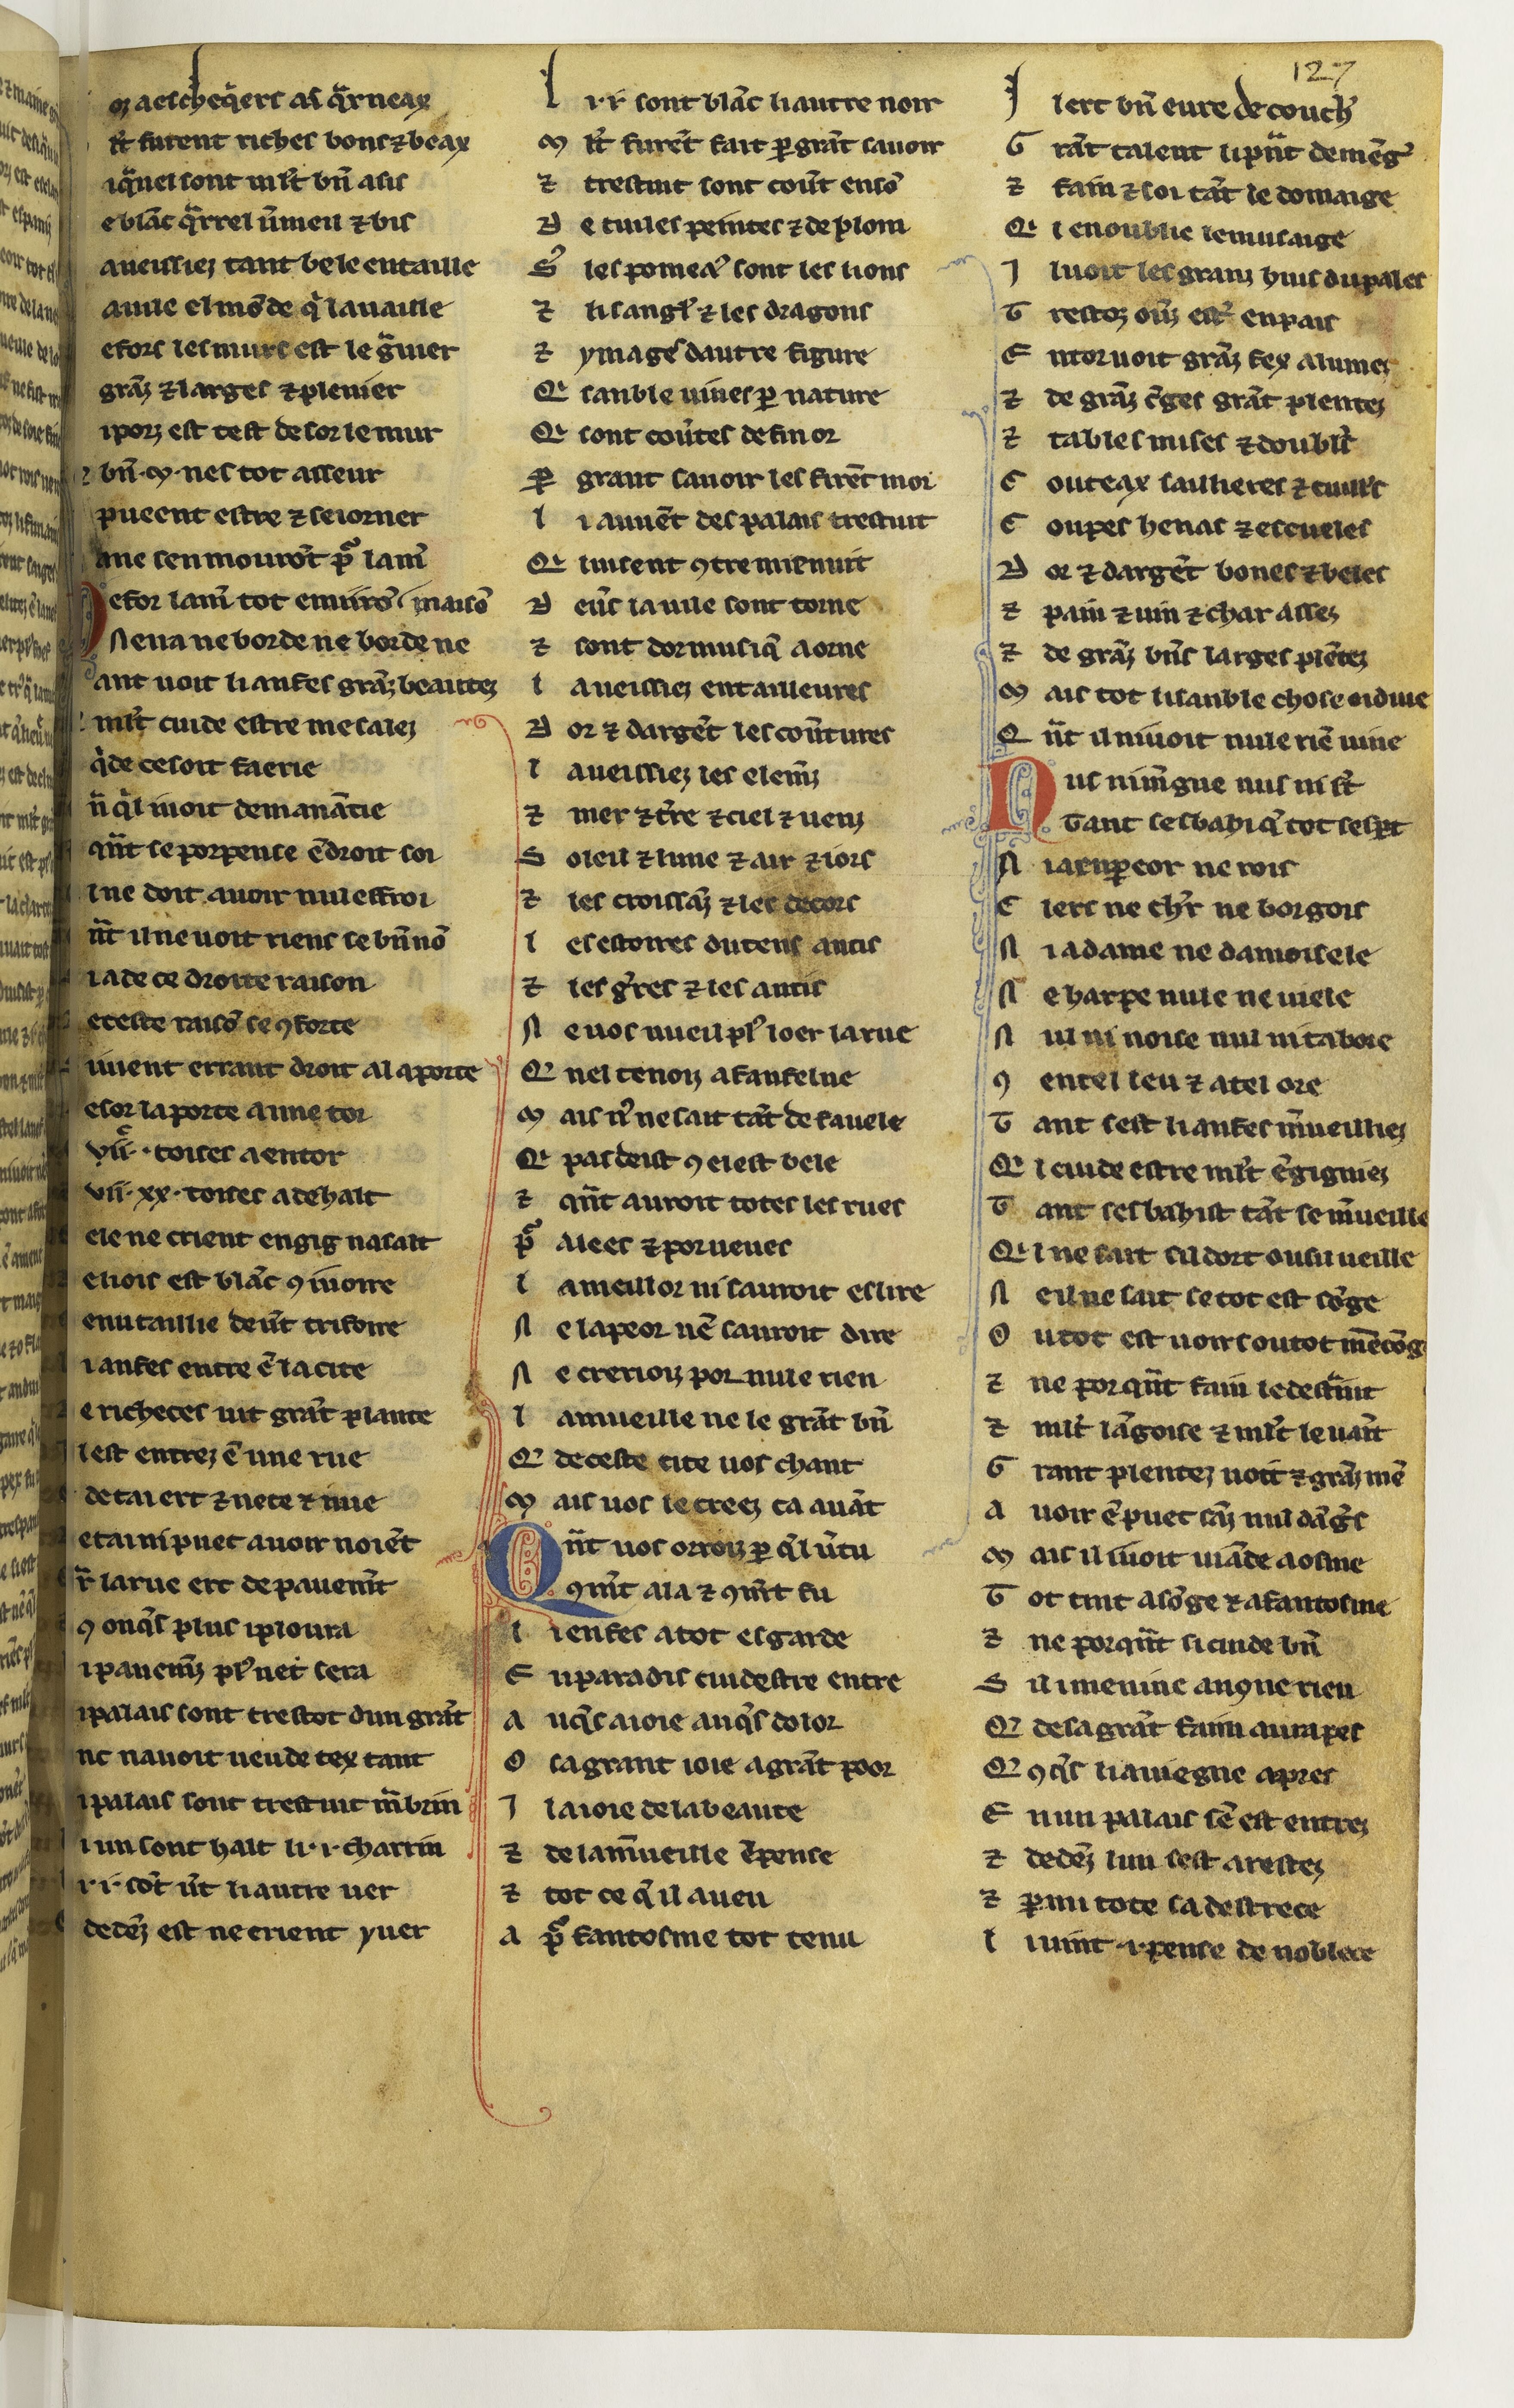 127
oz aeſcheq̃ers aſ q̃rneax
ml̃t furent riches bons ⁊ beax
iq̃rnel sont ml̃t bn̄ asis
e blãc q̃rrel v̄meil ⁊ bis
aueissiez tant bele entaille
a vile el mõde q̃ la vaille
efors les murs est le g̃uier
grãz ⁊ larges ⁊ plenier
i porz est cest desor le mur
bn̄ .m. nes tot asseur
pueent estre ⁊ seiorner
ane sen mourõt p̃ la m̃
Defor lam̃ tot enuirõ
N en a ne borde ne maisõ
ant voit li anfes grãz beautez
ml̃t cuide estre mesalez
q̃de ce soit faerie
n̄ q̃l i voit de manãtie
qñt se porpense ẽdroit soi
l ne doit avoir nul effroi
n̄t il ne voit riens se bn̄ nõ
i a de ce droite raison
e ceste raisõ se ꝯforte
i vient errant droit a la porte
esor la porte a une tor
vii.xx. toises a entor
vii.xx. toises a de halt
ele ne crient engig n asalt
e liois est blãc ꝯ ivoire
en entaillie deuãt trifoire
i anfes entre ẽ la cite
e richeces vit grãt plante
l est entrez ẽ une rue
de tai ert ⁊ nete ⁊ nue
e tai ni puet avoir noiẽt
r̄ la rue ert de pavemt̃
ꝯ onq̃s plus i ploura
i pavemz̃ pl᷒ net sera
i palais sont trestot dun grãt
nc n avoit veu de tex tant
i palais sont trestuit mãbrin
i un sont halt li .i. chartrin
i .i. sõt v̄t li autre ver
dedẽz est ne crient yver
L i .i. sont blãc li autre noir
M lt̃ furẽt fait p grãt savoir
⁊ trestuit sont cov̄t ensõ
D e tiules peintes ⁊ de plom
S᷒ les pomeax sont les lions
⁊ li s angl᷒ ⁊ les dragons
⁊ ymages dautre figure
Q sanble vives p nature
Q sont cov̄tes de fin or
P grant savoir les firẽt mor
L i avuẽt des palais trestuit
Q luisent ꝯtre mienuit
D eu̇s la vile sont torne
⁊ sont dor musiq̃ aorne
L aueissiez entailleures
D or ⁊ dargẽt les cov̄tures
L aueissiez les elemz̃
⁊ mer ⁊ t̃re ⁊ ciel ⁊ venz
S oleil ⁊ lune ⁊ air ⁊ iors
⁊ les croissãz ⁊ les decors
L es estoires du tens antis
⁊ les g̃res ⁊ les antis
N e vos vueil pl᷒ loer la rue
Q nel tenoiz a fanfelue
M ais n᷒ ne sait tãt de favele
Q pas deist ꝯ el est bele
⁊ qñt auroit totes les rues
P᷒ alees ⁊ por veues
L a meillor ni sauroit eslire
N e la peor nẽ sauroit dire
N e creriez por nule rien
L a mueille ne le grãt bn̄
Q de ceste cite vos chant
M ais vos le creez ca avãt
Q n̄t vos orroiz p q̃l v̄tu
ꝯmt̃ ala ⁊ ꝯmt̃ fu
L i enfes a tot esgarde
E n paradis cuidestre entre
A uq̃s a ioie auq̃s dolor
O sa grant ioie a grãt poor
I la ioie de la beaute
⁊ de la m̃ueille ẽpense
⁊ tot ce q̃ il a veu
A p᷒ fantosme tot tenu
I l ert bn̄ eure de couch᷒
G rãt talent li pn̄t de mẽg᷒
⁊ fain ⁊ soi tãt le domaige
Q i en oublie le musaige
I l voit les granz huis du pales
T restoz ov̄z estr᷒ en pais
E ntor voit grãz fex alumez
⁊ de grãz c̃ges grãt plentez
⁊ tables mises ⁊ doubl᷒
C outeax sallieres ⁊ cuill᷒s
C oupes henas ⁊ escueles
D or ⁊ dargẽt bones ⁊ beles
⁊ pain ⁊ vin ⁊ char assez
⁊ de grãz bn̄s larges plẽtez
M ais tot li sanble chose eidive
Q n̄t il ni voit nule riẽ vive
Nus ni m̃gue nus ni st̃
Tant sesbahi q̃ tot se spt̃
N i a enpeor ne rois
C lers ne ch᷒r ne borgois
N i a dame ne damoisele
N e harpe nule ne viele
N ul ni noise nul ni tabore
ꝯ en tel leu ⁊ a tel ore
T ant sest li anfes m̃veilliez
Q l cuide estre ml̃t ẽgigniez
T ant sesbahist tãt se m̃veille
Q l ne sait sil dort ou sil veille
N e il ne sait se tot est sõge
O u tot est voirs ou tot mẽcõg
⁊ ne por qñt fain le destraint
⁊ ml̃t lãgoise ⁊ ml̃t le vaīt
G rant plentez voit ⁊ grãz mẽ
A voir ẽ puet sãz nul dãg᷒s
M ais il i voit viãde a osme
T ot tint a sõge ⁊ a fantosme
⁊ ne porqñt si cuide bn̄
S il i mevine anꝯne rien
Q de sa grãt faim aura pes
Q ꝯq̃s li aviegne apres
E n un palais sẽ est entrez
⁊ dedẽz lun sest arestez
⁊ p mi tote sa destrece
L i vint .i. pense de noblece